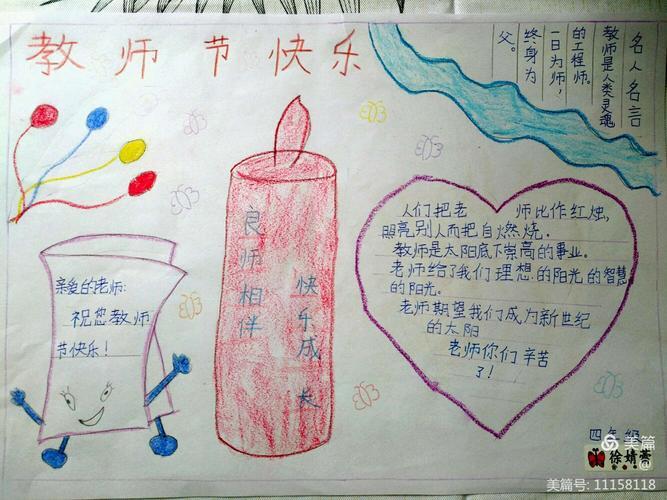 教师节快乐
名人名言
教师是人类灵魂
的工程师。
一日为师，
终身为
父。
良师相伴
快乐成长
亲爱的老师:
祝您教师
节快乐!
人们把老 师比作红烛,
照亮别人而把自燃烧.
教师是太阳底下崇高的事业.
老师给了我们理想的阳光的智慧
的阳光.
老师期望我们成为新世纪
的太阳
老师你们辛苦
了!
四年级
徐婧萱
美篇
美篇号: 11158118